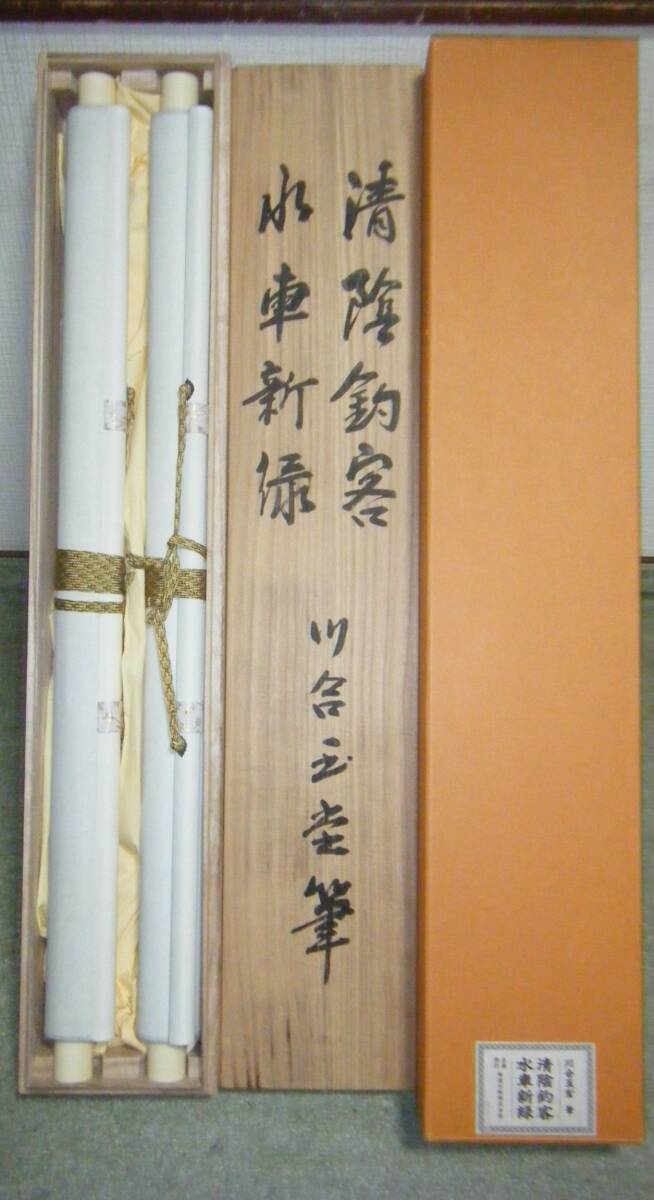 清陰釣客
水車新緑
川合玉堂筆
川合玉堂 筆
清陰釣客
水車新緑